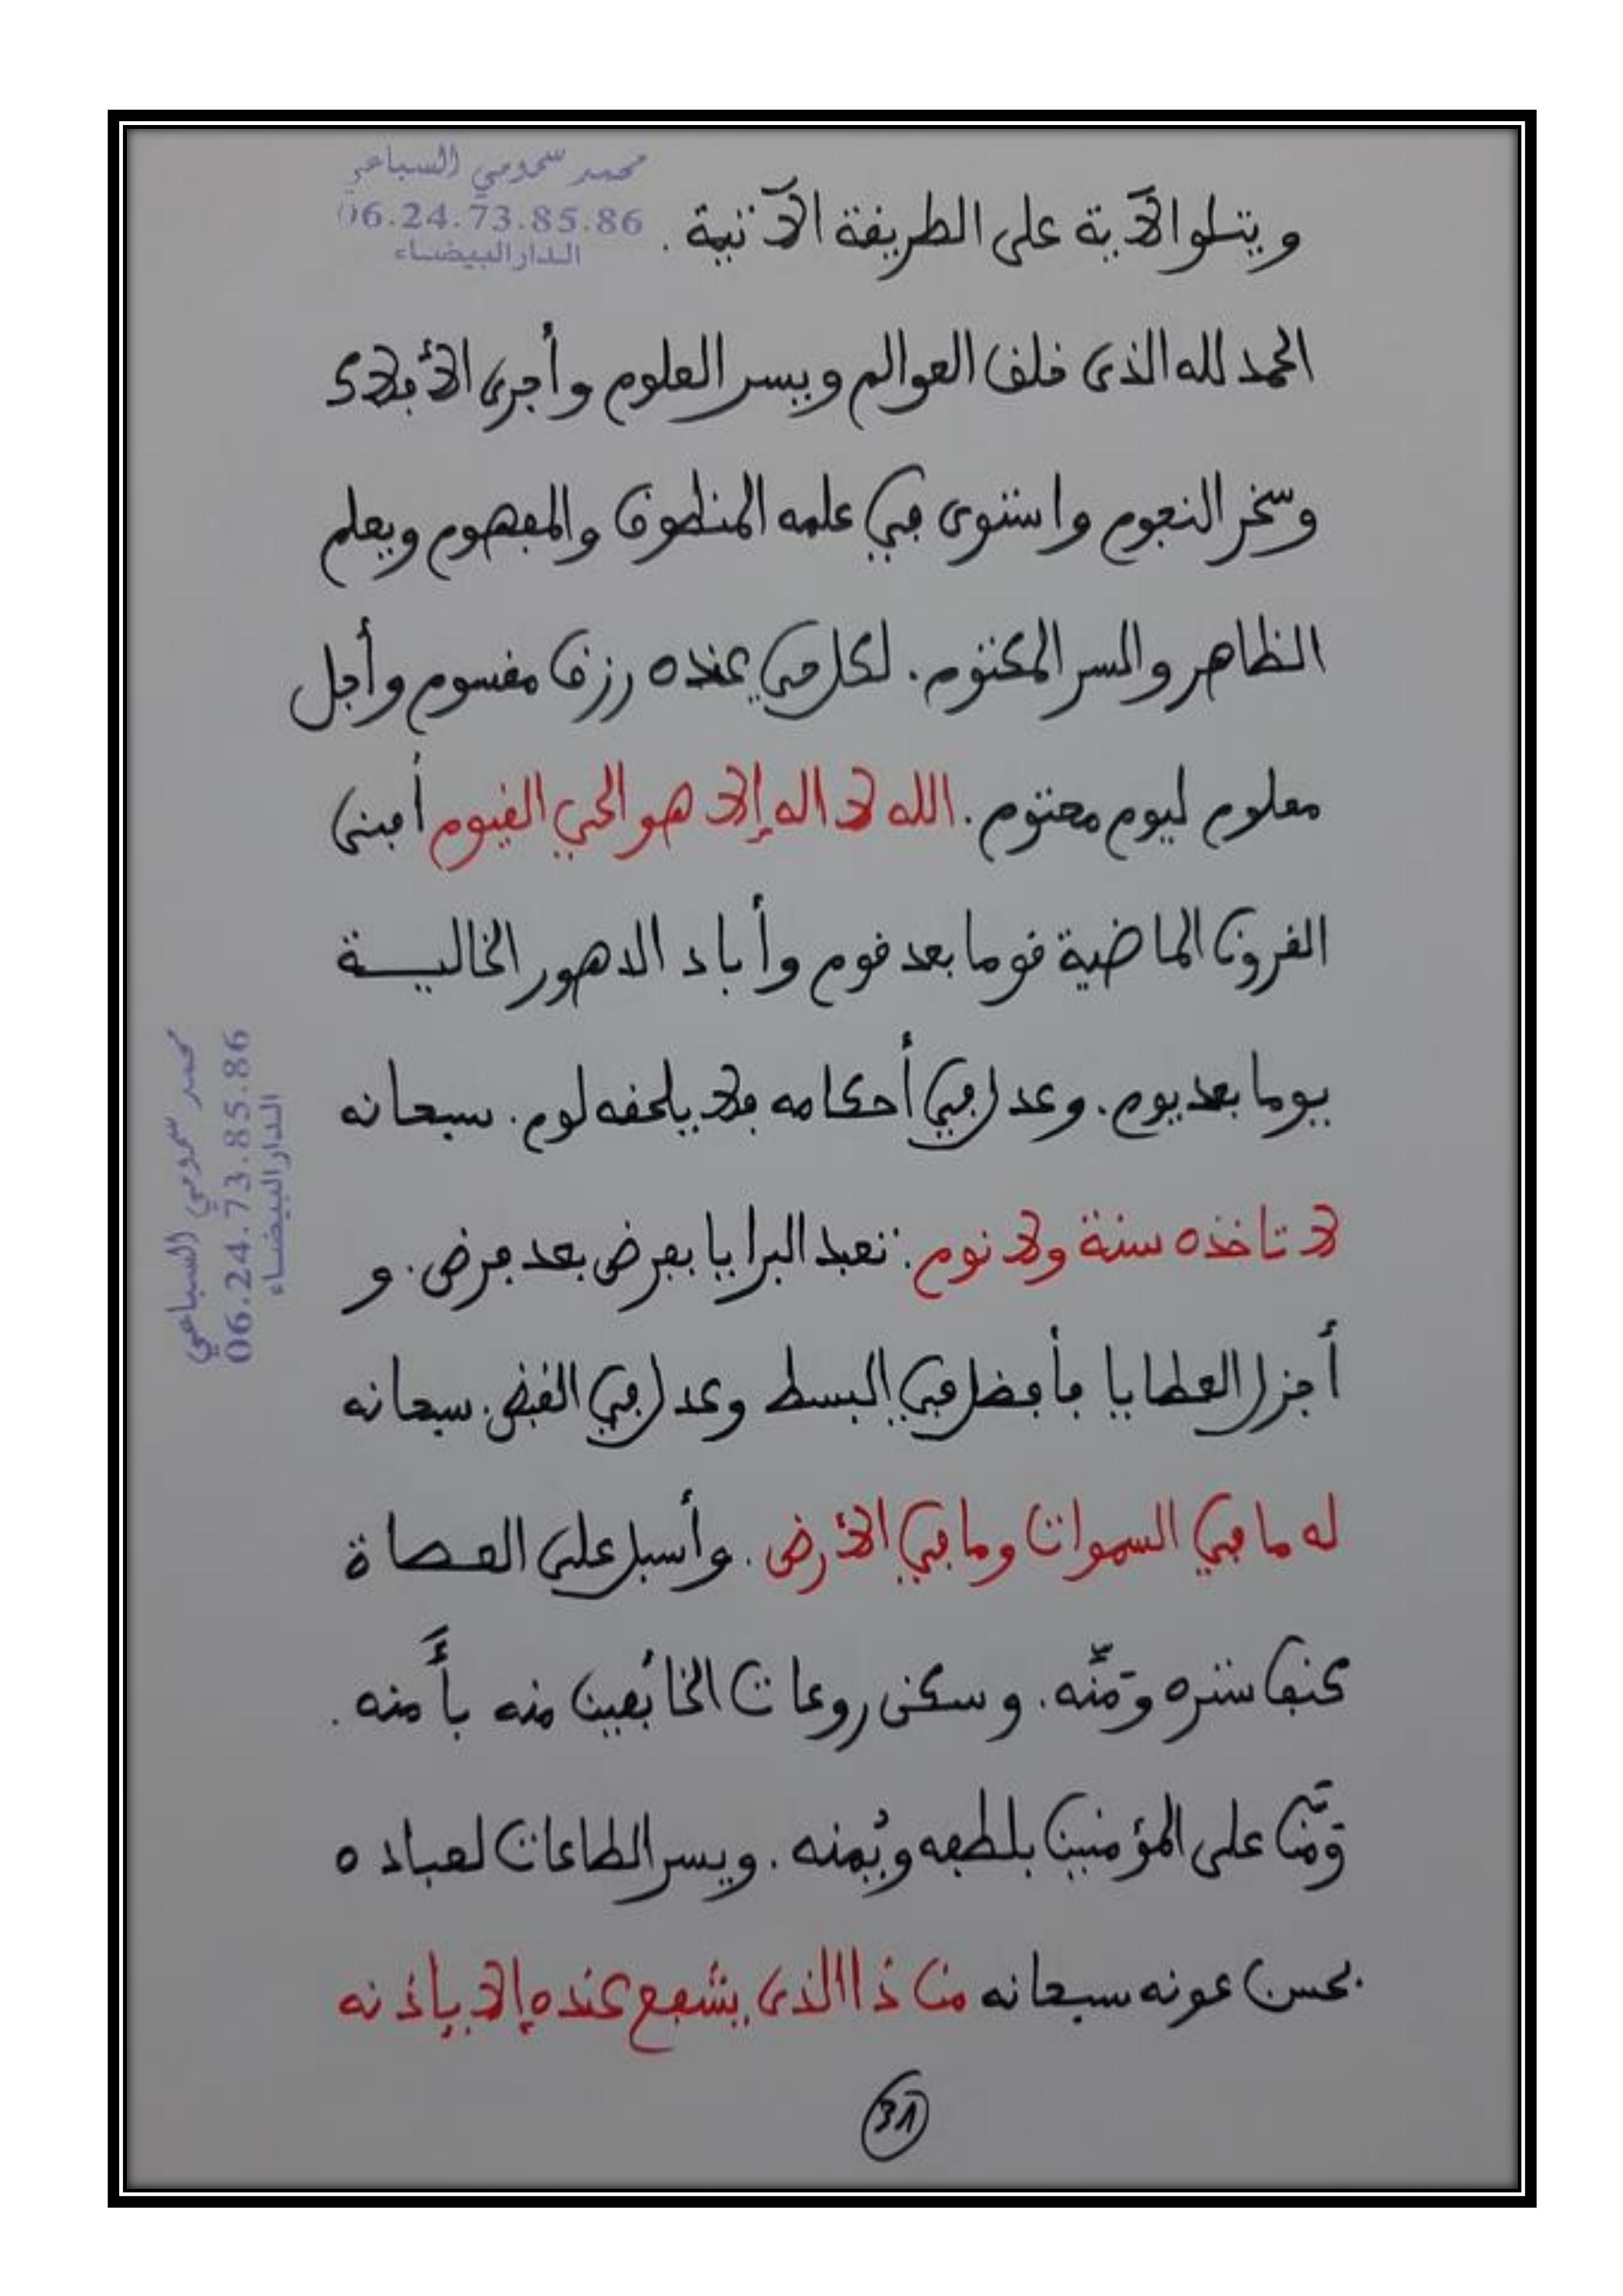 محمد سحومي السباعي
06.24.73.85.86
الدار البيضاء
ويتلو الآية على الطريقة الآتية .
الحمد لله الذى خلق العوالم ويسر العلوم وأجرى الأفلاك
وسخر النجوم واستوى في علمه المنطوق والمفهوم ويعلم
الظاهر والسر المكتوم . لكل حي عنده رزق مقسوم وأجل
معلوم ليوم محتوم . الله لا اله إلا هو الحي القيوم أفنى
القرون الماضية قوما بعد قوم وأباد الدهور الخالية
يوما بعد يوم . وعدل في أحكامه فلا يلحقه لوم . سبحانه
لا تاخذه سنة ولا نوم . تعبد البرايا بفرض بعد فرض . و
أجزل العطايا فأفضل في البسط وعدل في القبض . سبحانه
له ما في السموات وما في الأرض . وأسبل على العصاة
كنف ستره ومَنِّه . وسكن روعات الخائفين منه بأَمنه .
ومَنَّ على المؤمنين بلطفه ويُمنه . ويسر الطاعات لعباده
بحسن عونه سبحانه من ذا الذى يشفع عنده إلا بإذنه
31
محمد سحومي السباعي
06.24.73.85.86
الدار البيضاء